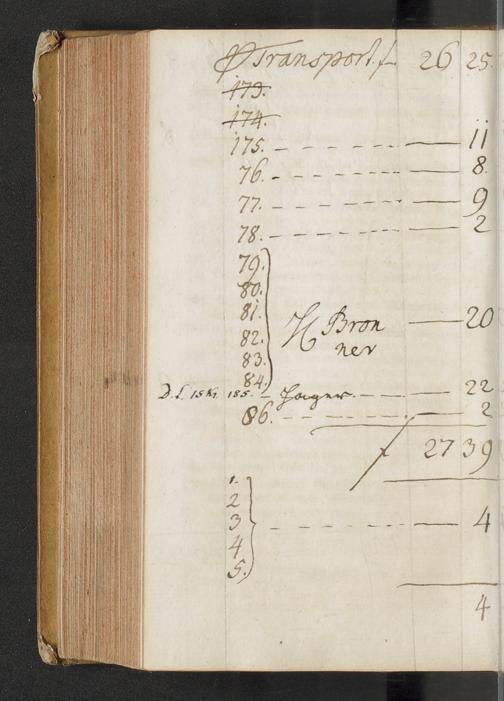 Transport f 26 25.
173.
174.
175. 11
76. 8
77. 9
78. 2
79.
80.
81. H Bron 20
82. ner
83.
84.
D. L. 15 Kr 185. Jager 22
86. 2
f 27 39
1.
2
3 4
4
5.
4